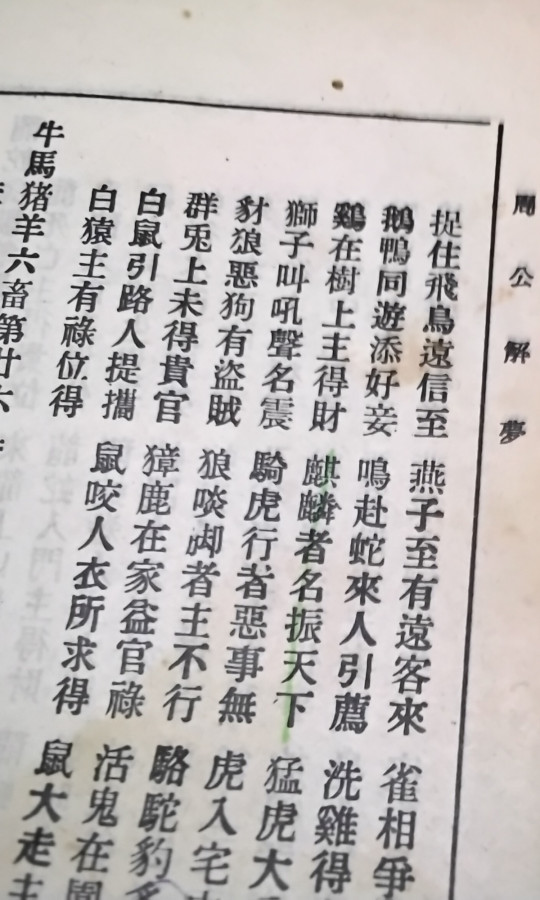 周公解夢
捉住飛鳥遠信至 燕子至有遠客來 雀相爭
鵝鴨同遊添好妾 鳴赴蛇來人引薦 洗雞得
鷄在樹上主得財 麒麟者名振天下 猛虎大
獅子叫吼聲名震 騎虎行者惡事無 虎入宅
豺狼惡狗有盜賊 狼啖脚者主不行 駱駝豹
群兎上未得貴官 獐鹿在家益官祿 活鬼在
白鼠引路人提攜 鼠咬人衣所求得 鼠大走主
白猿主有祿位得
牛馬猪羊六畜第廿六